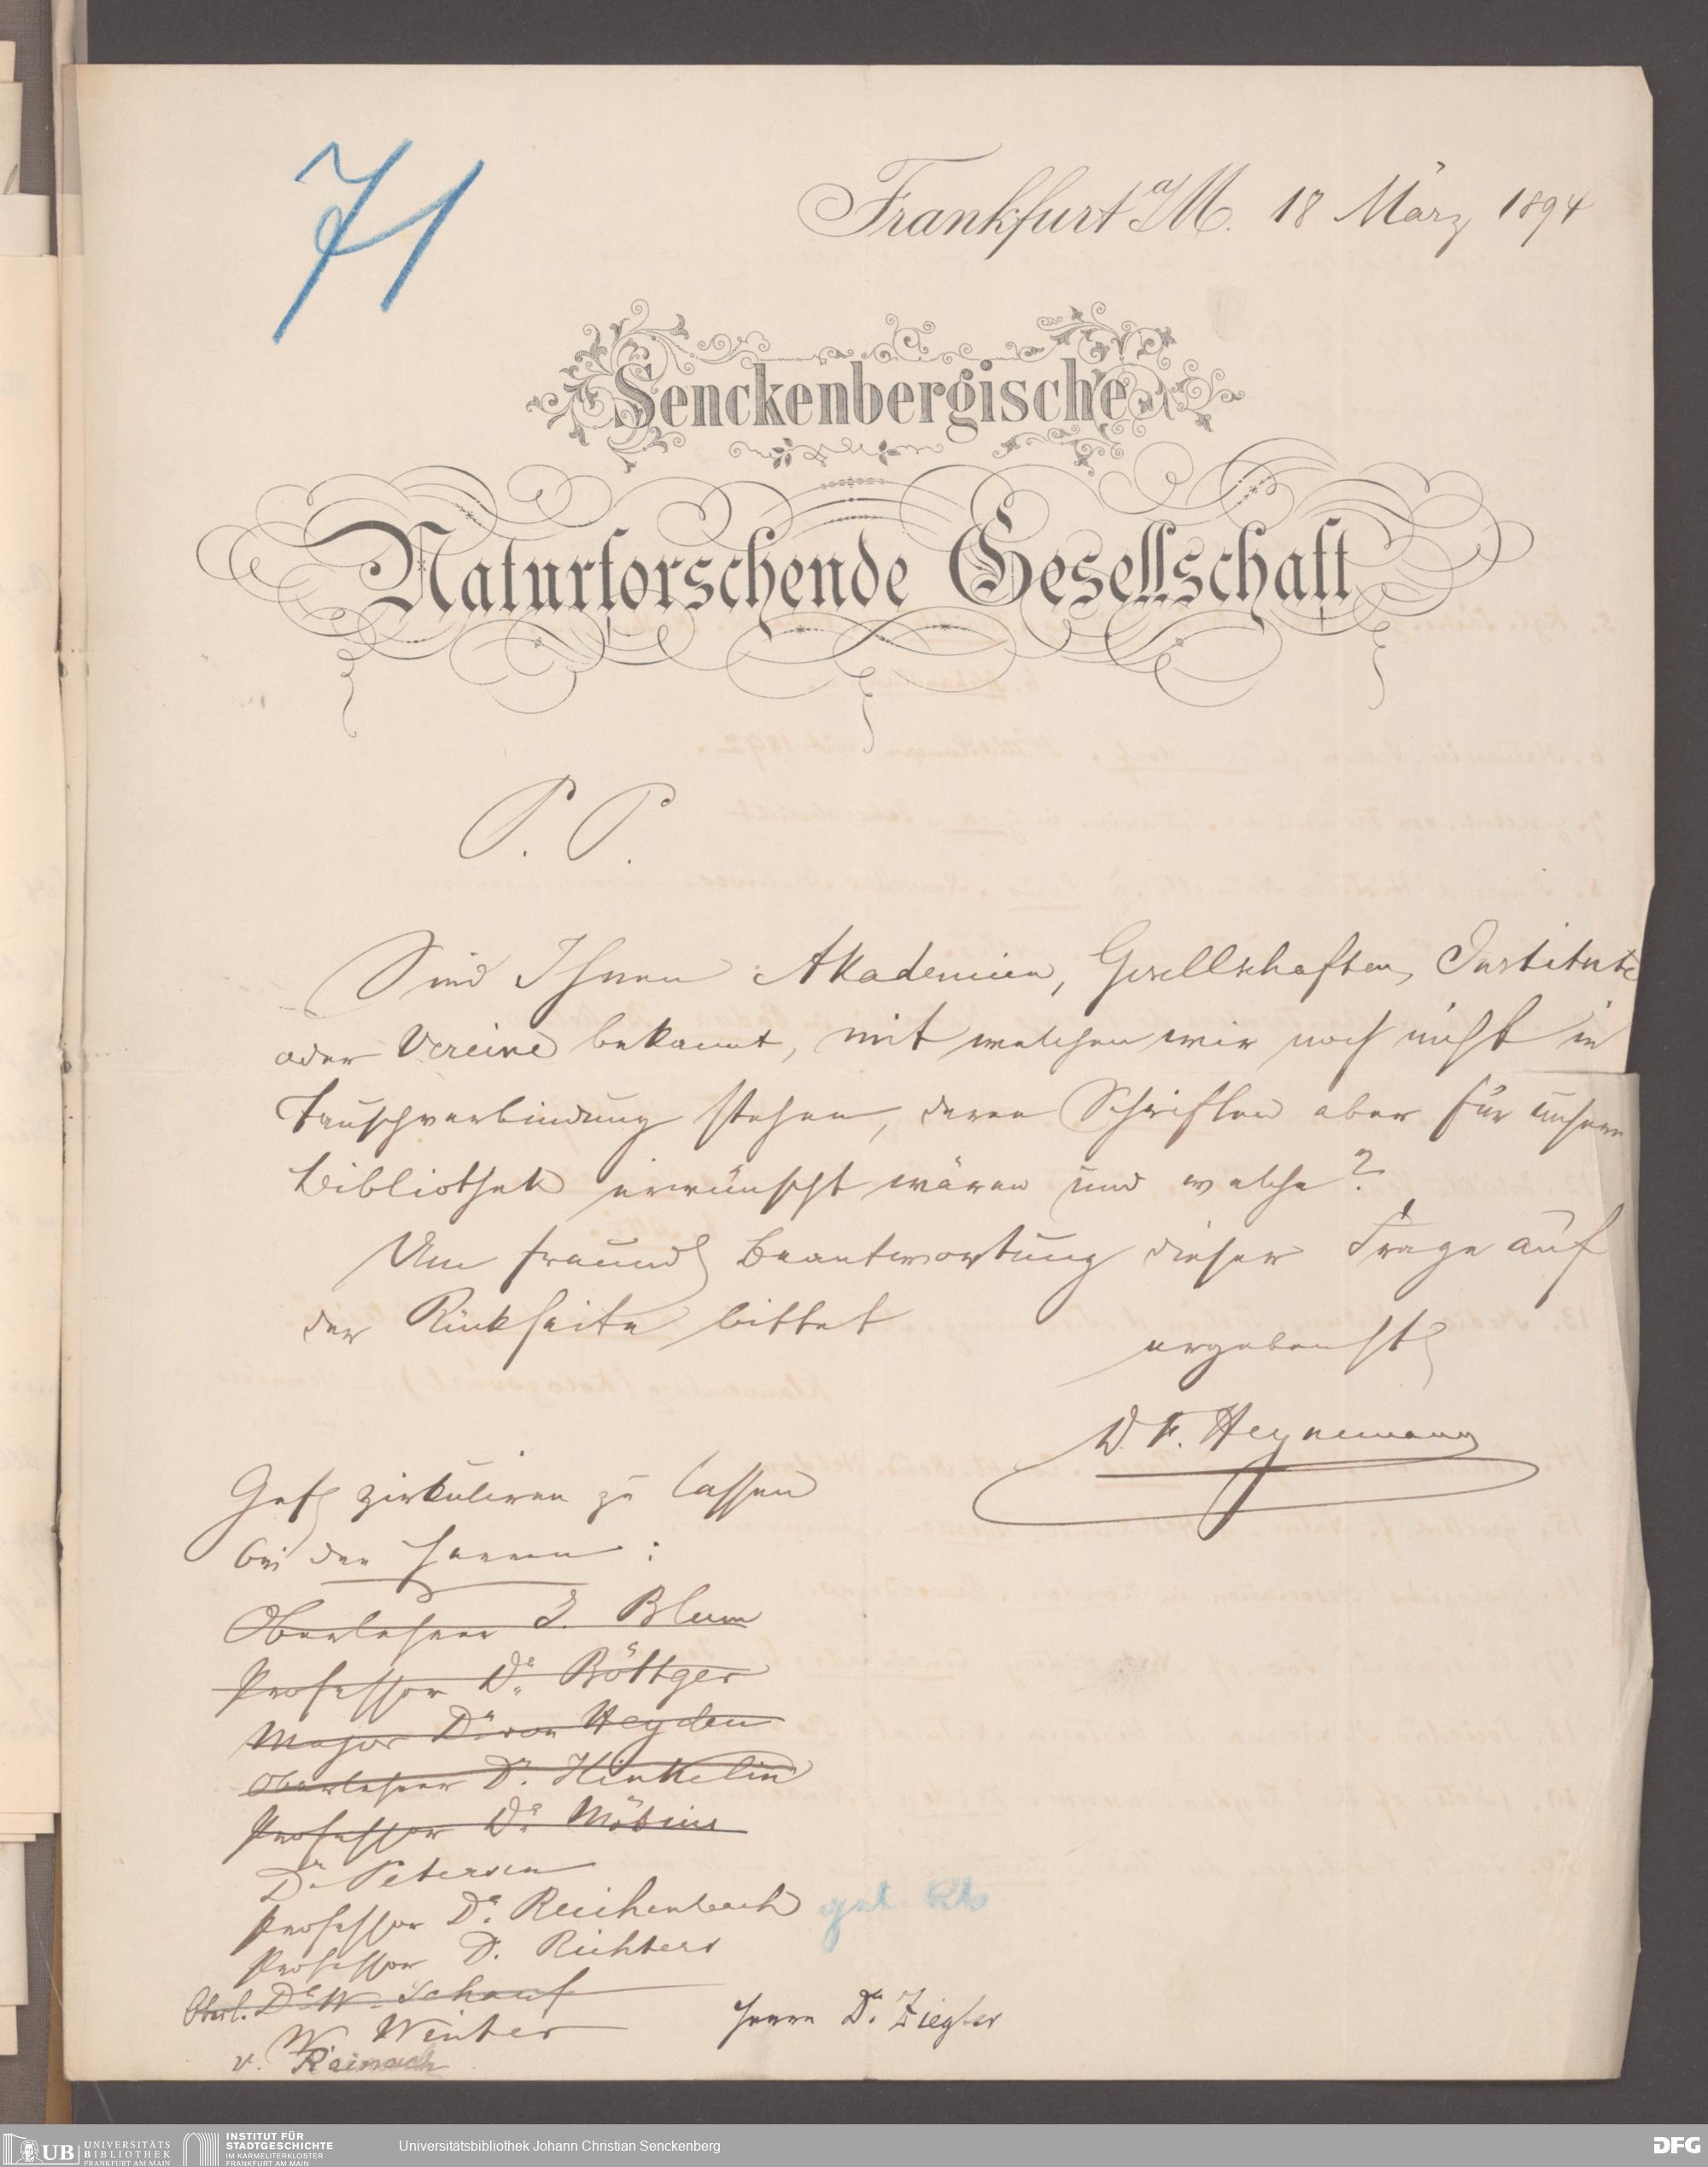 71
Frankfurt a/M. 18 März 1894
Senckenbergische
Naturforschende Gesellschaft
P. P.
Sind Ihnen Akademien, Gesellschaften, Institute
oder Vereine bekannt, mit welchen wir noch nicht in
Tauschverbindung stehen, deren Schriften aber für unsere
Bibliothek erwünscht wären und welche?
Um freundl Beantwortung dieser Frage auf
der Rückseite bittet
ergebenst
D. F. Heynemann
Gefl zirkuliren zu lassen
bei den Herren:
Oberlehrer J. Blum
Professor Dr. Böttger
Major Dr. von Heyden
Oberlehrer Dr. Kinkelin
Professor Dr. Möbius
Dr. Petersen
Professor Dr. Reichenbach
Professor D. Richters
Oberl. Dr. W. Schauf
W. Winter
Herrn Dr. Ziegler
v. Reinach
UB UNIVERSITÄTS
BIBLIOTHEK
FRANKFURT AM MAIN
INSTITUT FÜR
STADTGESCHICHTE
IM KARMELITERKLOSTER
FRANKFURT AM MAIN
Universitätsbibliothek Johann Christian Senckenberg
DFG